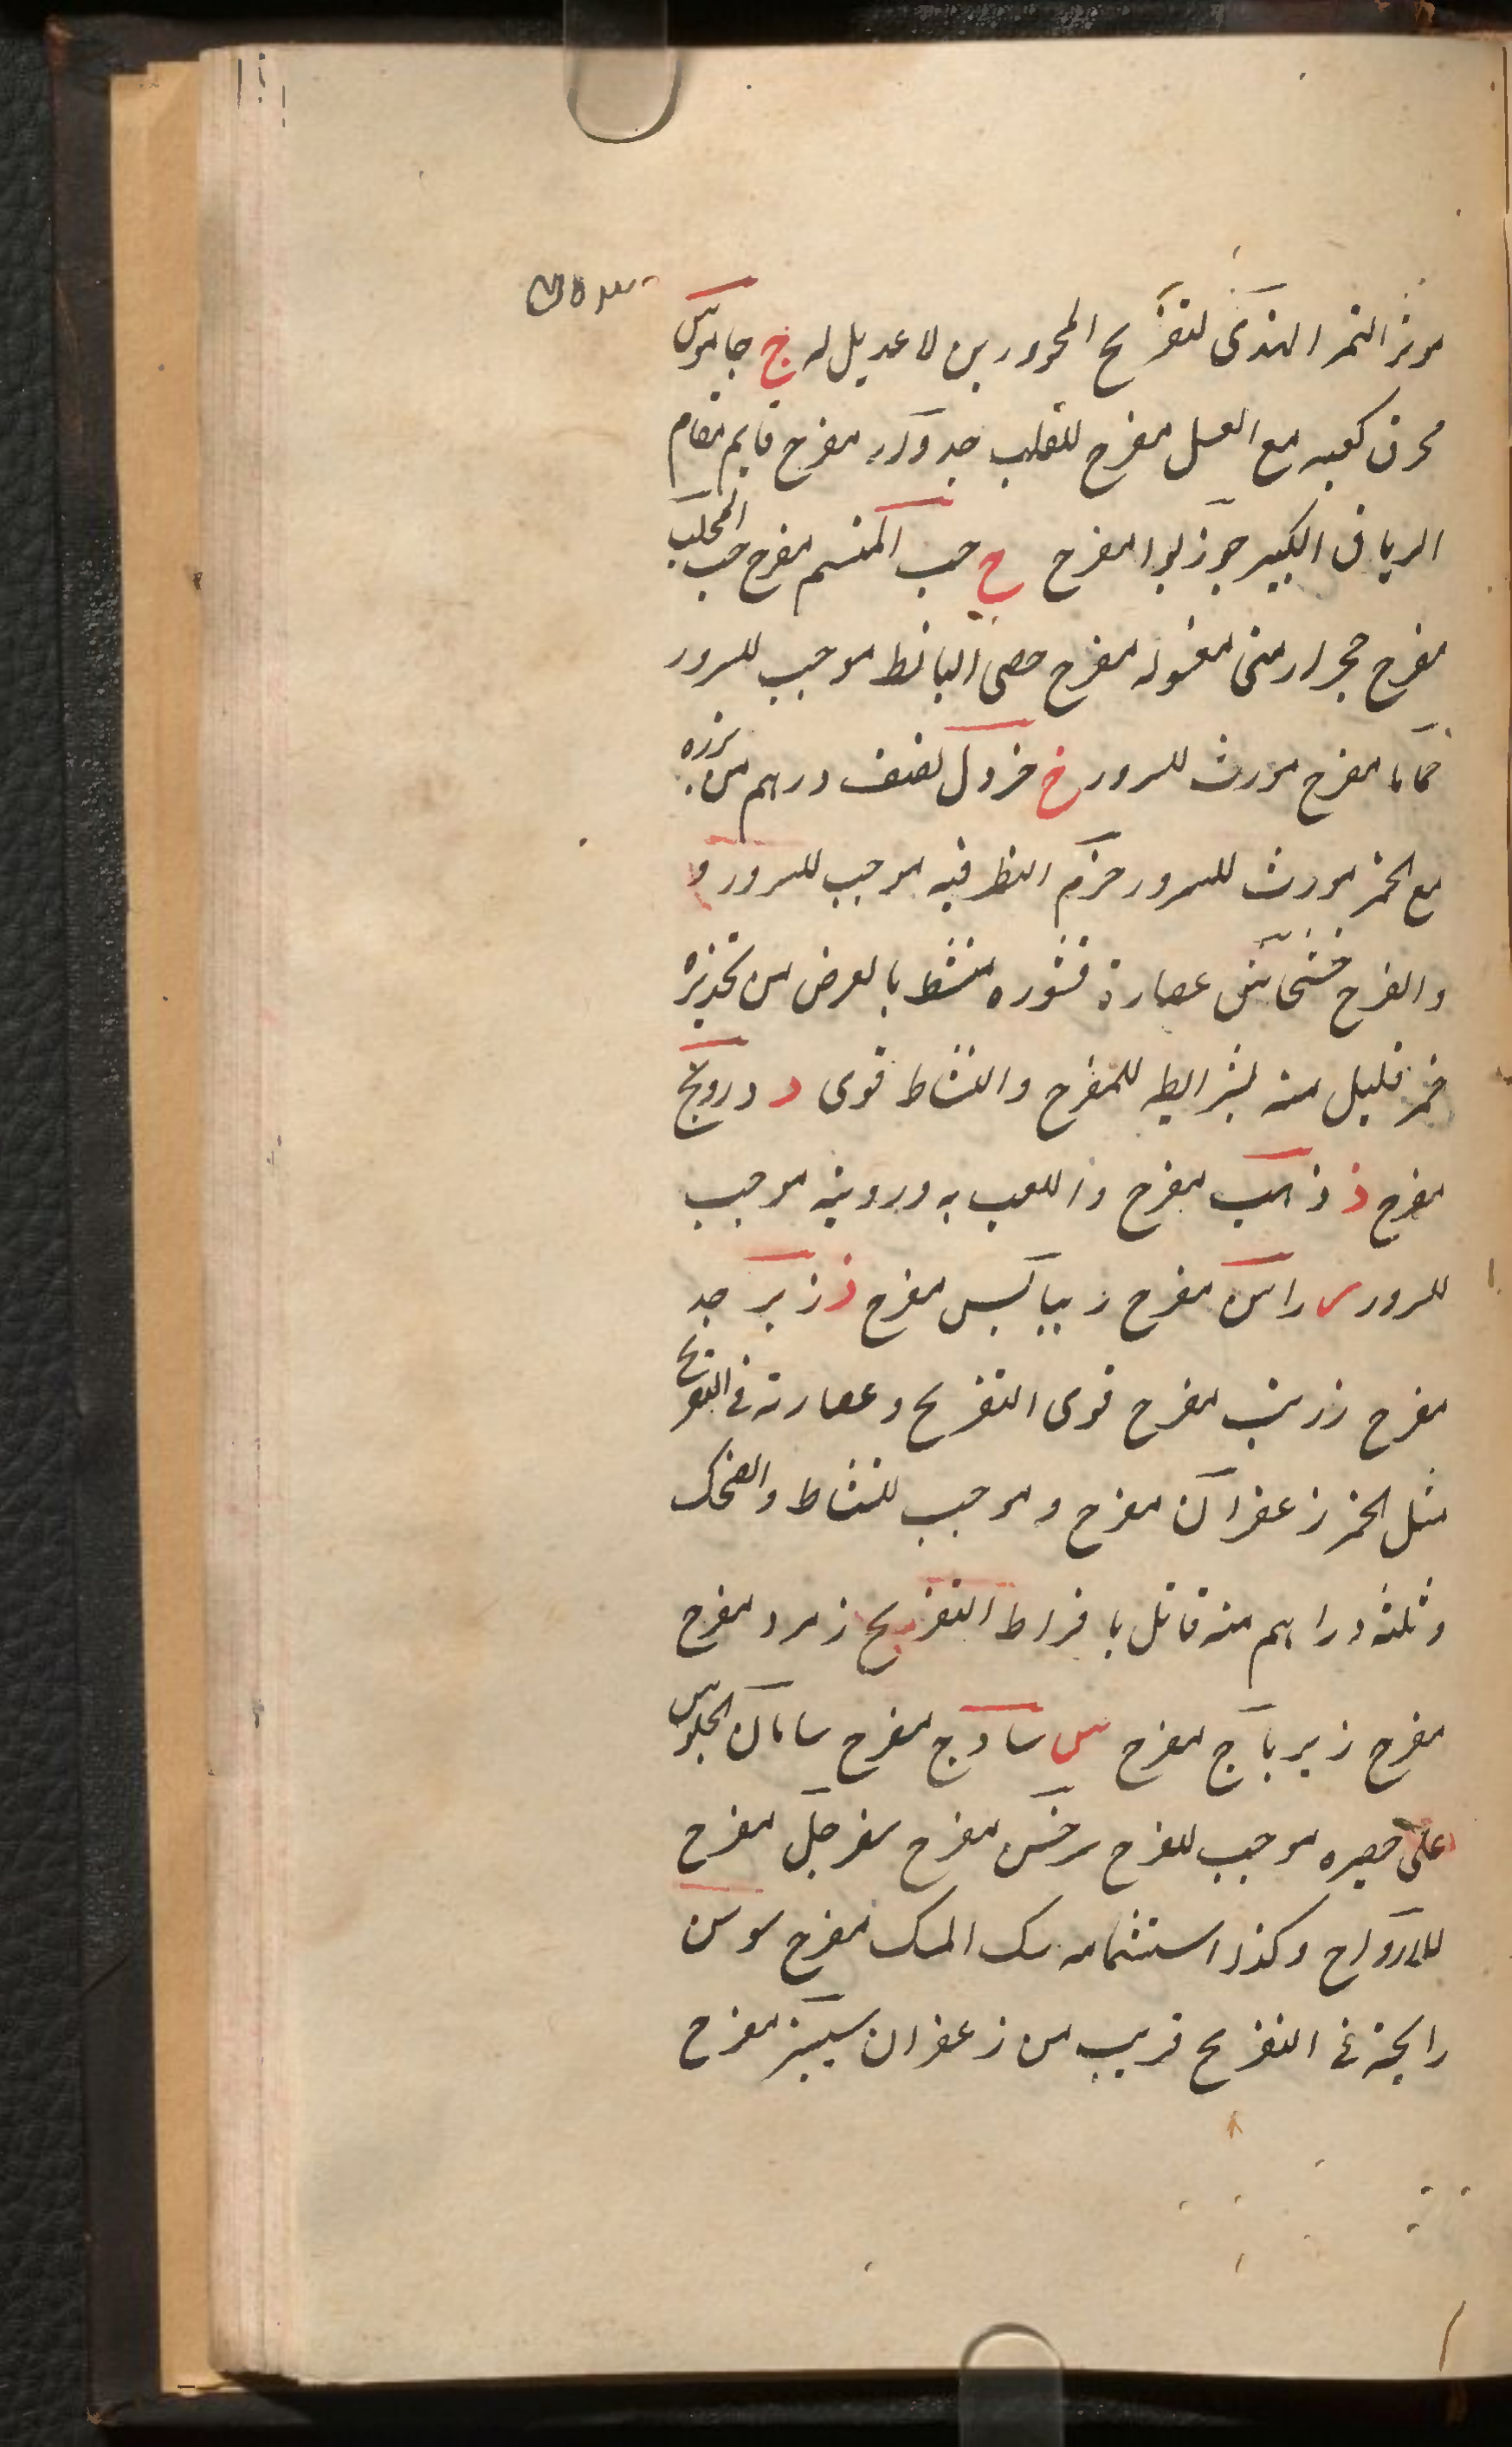 موثر التمر الهندى لتفريح المحرورين لا عديل له ج جاموس
محرق كعبه مع العسل مفرح للقلب جدوار مفرح قايم مقام
الترياق الكبير جوز بوا مفرح ح حب المنسم مفرح حب المحلب
مفرح حجر ارمنى مغسوله مفرح حصى البانط موجب للسرور
حماما مفرح مورث للسرور خ خردل نصف درهم من بزره
مع الخمر مورث للسرور خزم النظر فيه موجب للسرور و
والفرح خشخاش عصارة قشوره منشط بالعرض من تخديره
خمر قليل منه بشرايطه للمفرح والنشاط قوى د درونج
مفرح ذ ذهب مفرح واللعب به ورويته موجب
للسرور ر راسن مفرح ريباس مفرح ز زبرجد
مفرح زرنب مفرح قوى التفريح وعصارته فى التفريح
مثل الخمر زعفران مفرح وموجب للنشاط والضحك
وثلثه دراهم منه قاتل بافراط التفريح زمرد مفرح
مفرح زيرباج مفرح س سادج مفرح سامان الجلوس
على حصيره موجب للفرح سرخس مفرح سفرجل مفرح
للارواح وكذا استشمامه سك المسك مفرح سوسن
رايحته فى التفريح قريب من زعفران سيسنبر مفرح